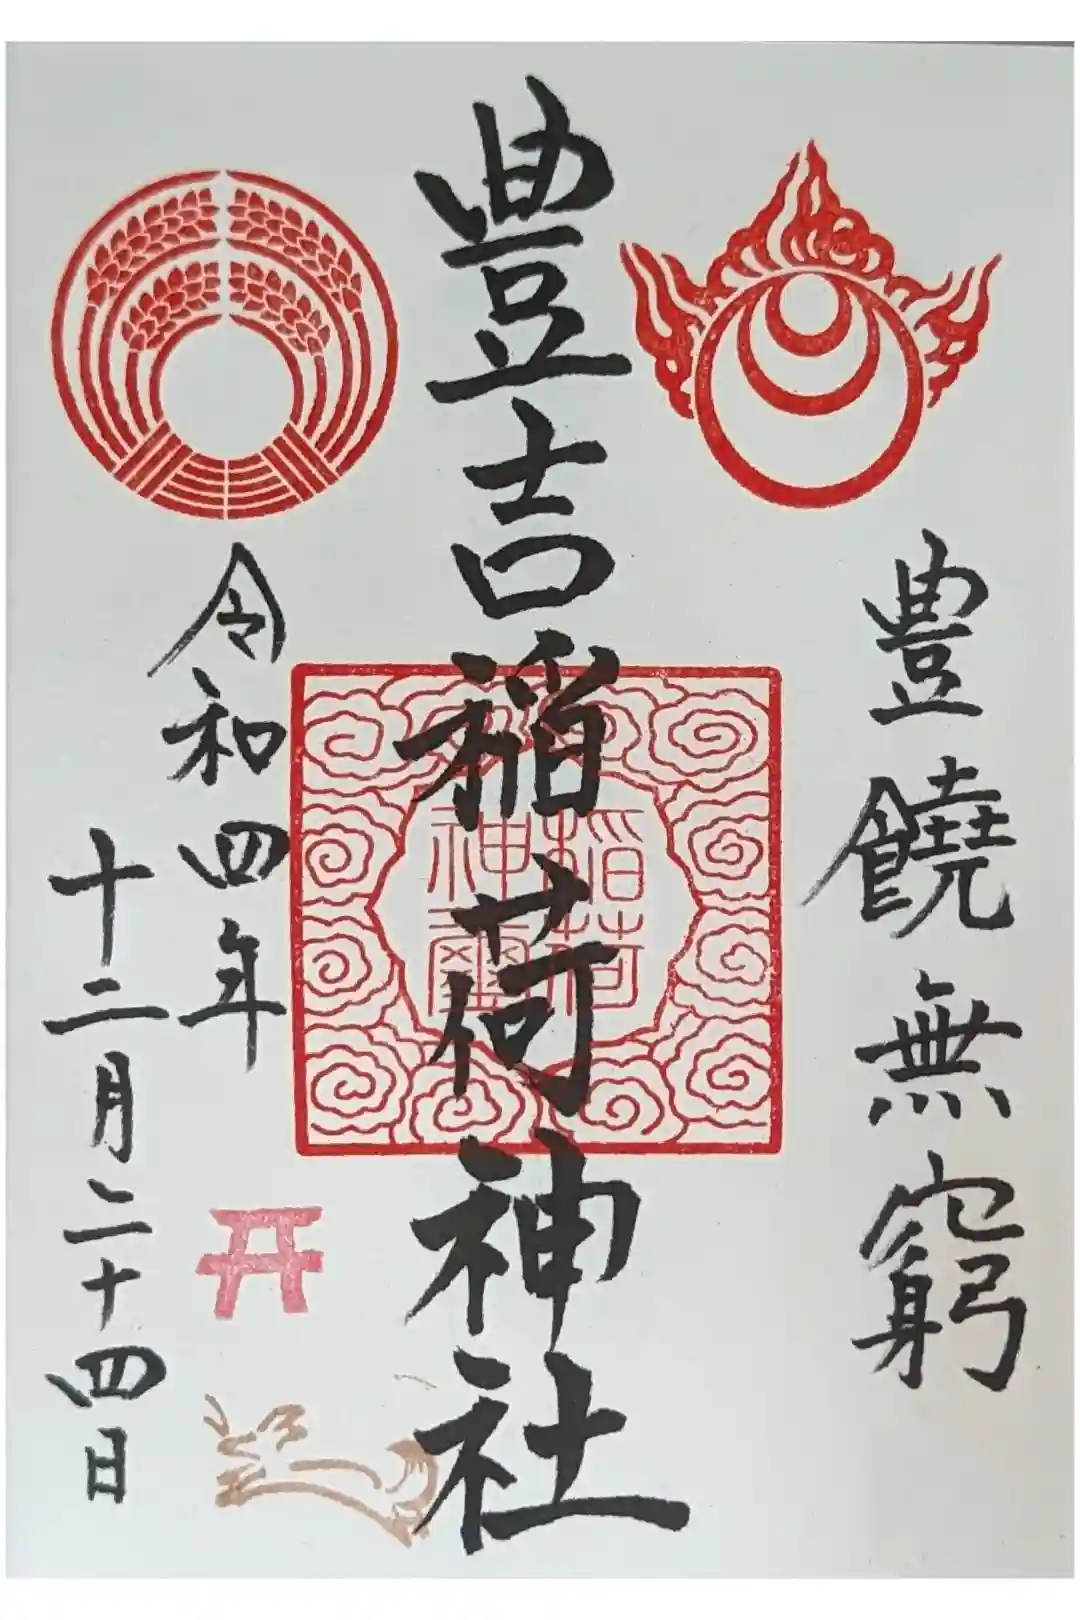 豊饒無窮
豊吉稲荷神社
稲荷
神璽
令和四年
十二月二十四日